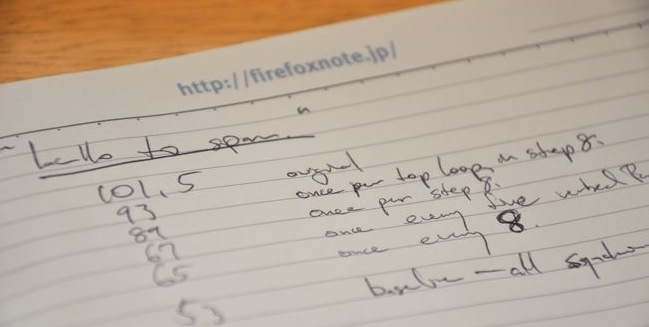 http://firefoxnote.jp/
hello to span
101.5 original
93 once per top loop in step 8.
87 once per step 8.
67 once every five
65 once every 8.
53 baseline — all